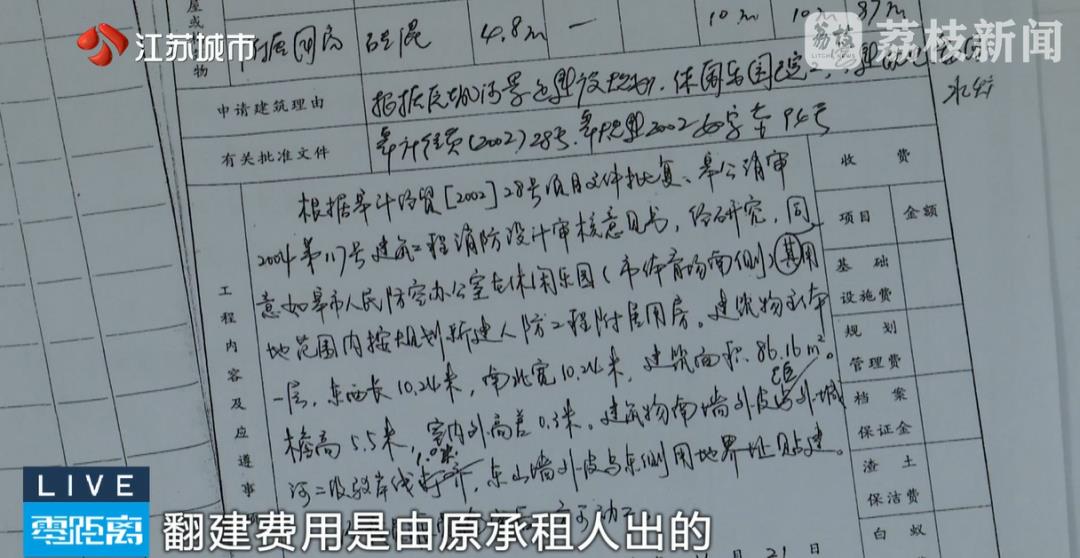 江苏城市
荔枝新闻
荔枝
屋或
物
附属用房
砖混
4.8m
—
10m
10m
87m
申请建筑理由
根据 河景 建设规划,休闲乐园已定
有关批准文件
皋计经贸(2002)28号.皋规 2002 字 94号
收费
根据皋计经贸[2002]28号项目文件批复、皋公消审
项目
金额
2004第117号建筑工程消防设计审核意见书,经研究,同
意如皋市人民防空办公室在休闲乐园(市体育场南侧)其用
基础
设施费
地范围内按规划新建人防工程附属用房。建筑物主体
规划
管理费
一层,东西长10.24米,南北宽10.24米,建筑面积86.16m²。
檐高5.5米,室内外高差0.3米。建筑物南墙外皮 外城
档案
保证金
河二级驳岸线 ,东山墙外皮与东侧用地界址贴建。
渣土
保洁费
白蚁
工程内容及应遵事
月21日
LIVE
零距离
翻建费用是由原承租人出的